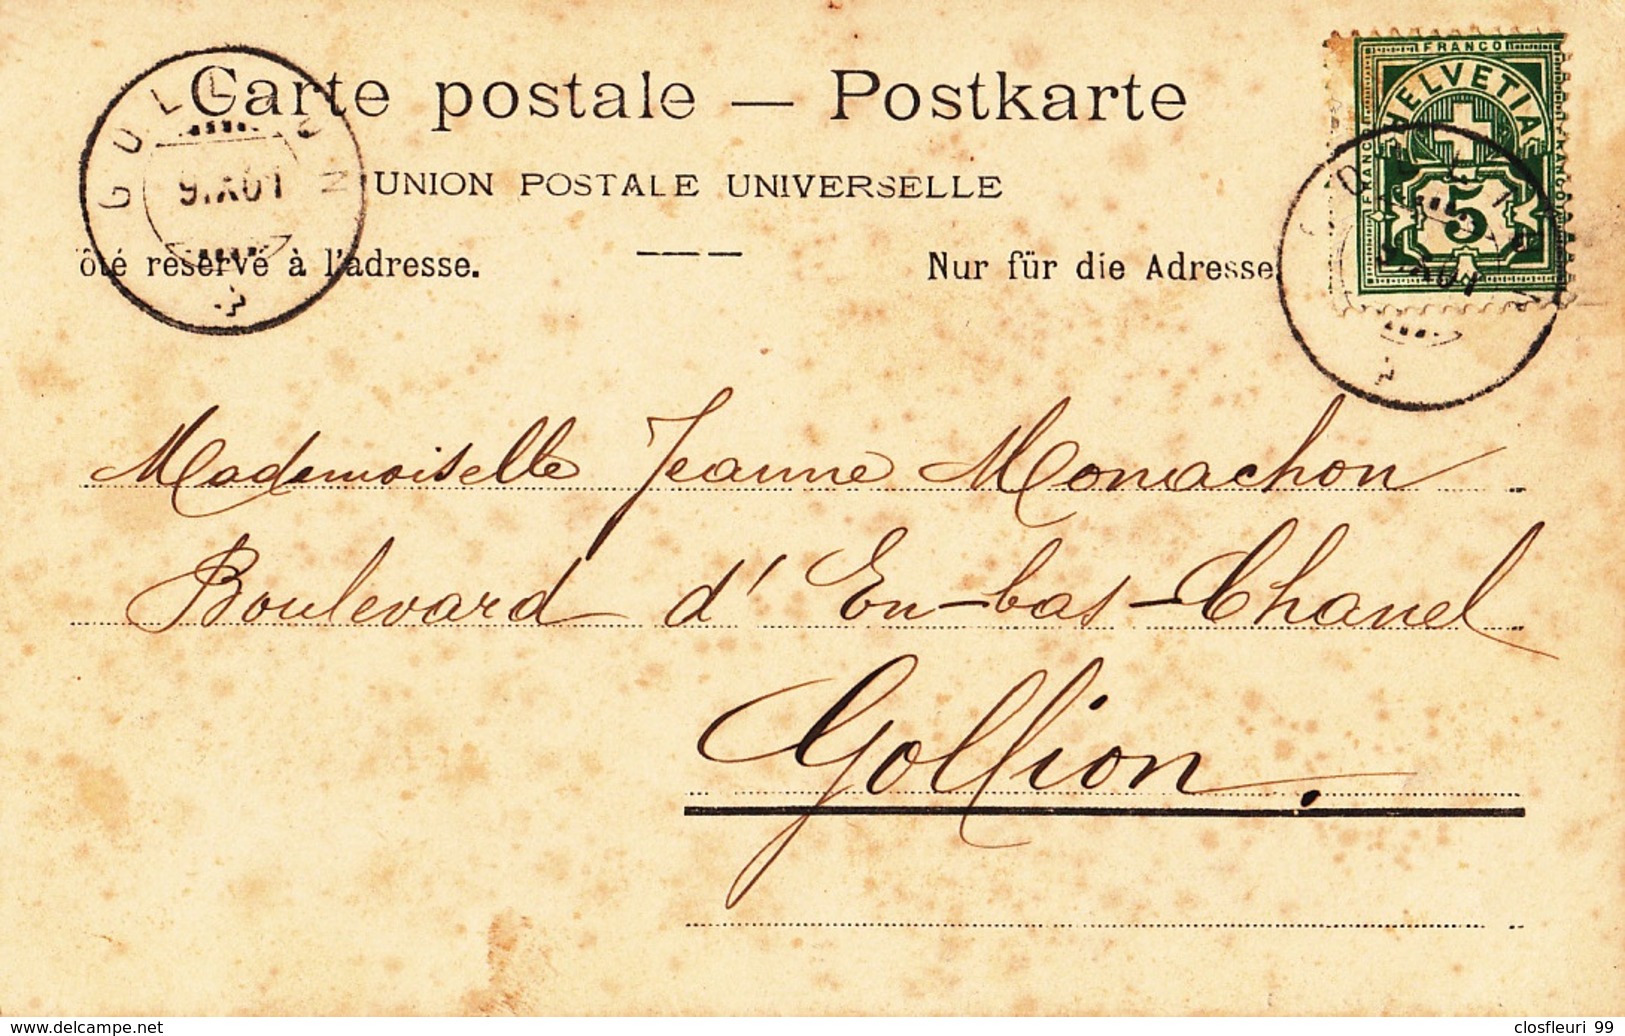 Carte postale — Postkarte
UNION POSTALE UNIVERSELLE
ôté réservé à l'adresse.
Nur für die Adresse
GOLLION
9.X.01
FRANCO
HELVETIA
FRANCO
FRANCO
5
GOLLION
9.X.01
Mademoiselle Jeanne Monachon
Boulevard d'En-bas-Chanel
Gollion.
www.delcampe.net
closfleuri 99